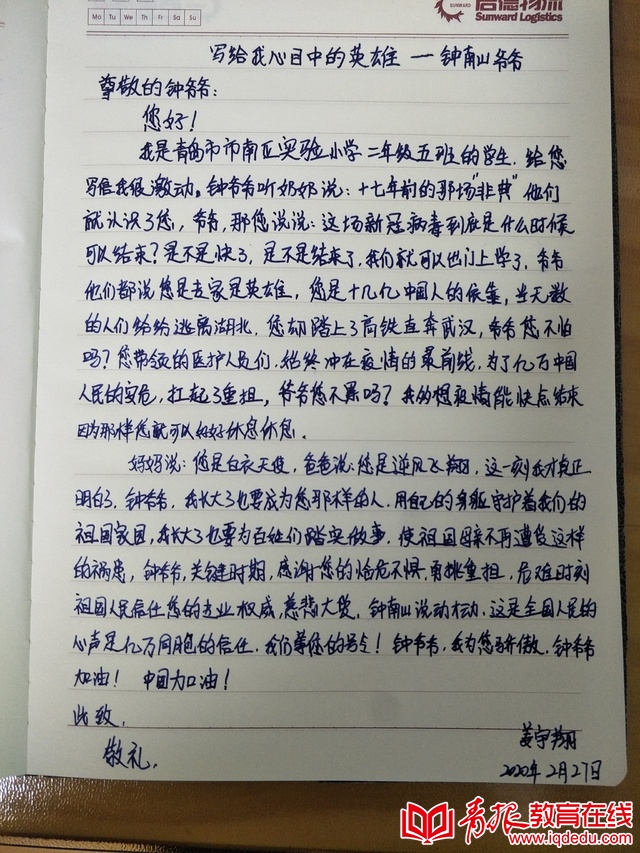 Mo Tu We Th Fr Sa Su
启德物流
SUNWARD Sunward Logistics
写给我心目中的英雄 — 钟南山爷爷
尊敬的钟爷爷：
您好！
我是青岛市市南区实验小学二年级五班的学生．给您
写信我很激动．钟爷爷听奶奶说：十七年前的那场"非典"他们
就认识了您，爷爷，那您说说：这场新冠病毒到底是什么时候
可以结束？是不是快了，是不是结束了，我们就可以出门上学了，爷爷
他们都说您是专家是英雄，您是十几亿中国人的依靠，当无数
的人们纷纷逃离湖北．您却踏上了高铁直奔武汉，爷爷您不怕
吗？您带领的医护人员们，始终冲在疫情的最前线，为了亿万中国
人民的安危，扛起了重担，爷爷您不累吗？我多想疫情能快点结束
因为那样您就可以好好休息休息．
妈妈说：您是白衣天使，爸爸说：您是逆风飞翔，这一刻我才真正
明白了．钟爷爷，我长大了也要成为您那样的人．用自己的身躯守护着我们的
祖国家园，我长大了也要为百姓们踏实做事．使祖国母亲不再遭受这样
的祸患，钟爷爷，关键时期，感谢您的临危不惧．勇挑重担，危难时刻
祖国人民信任您的专业权威，慈悲大爱．钟南山说动才动．这是全国人民的
心声是亿万同胞的信任．我们等您的号令！钟爷爷，我为您骄傲．钟爷爷
加油！中国加油！
此致．
敬礼．
姜宇翔
2020年2月27日
青报教育在线
www.iqdedu.com